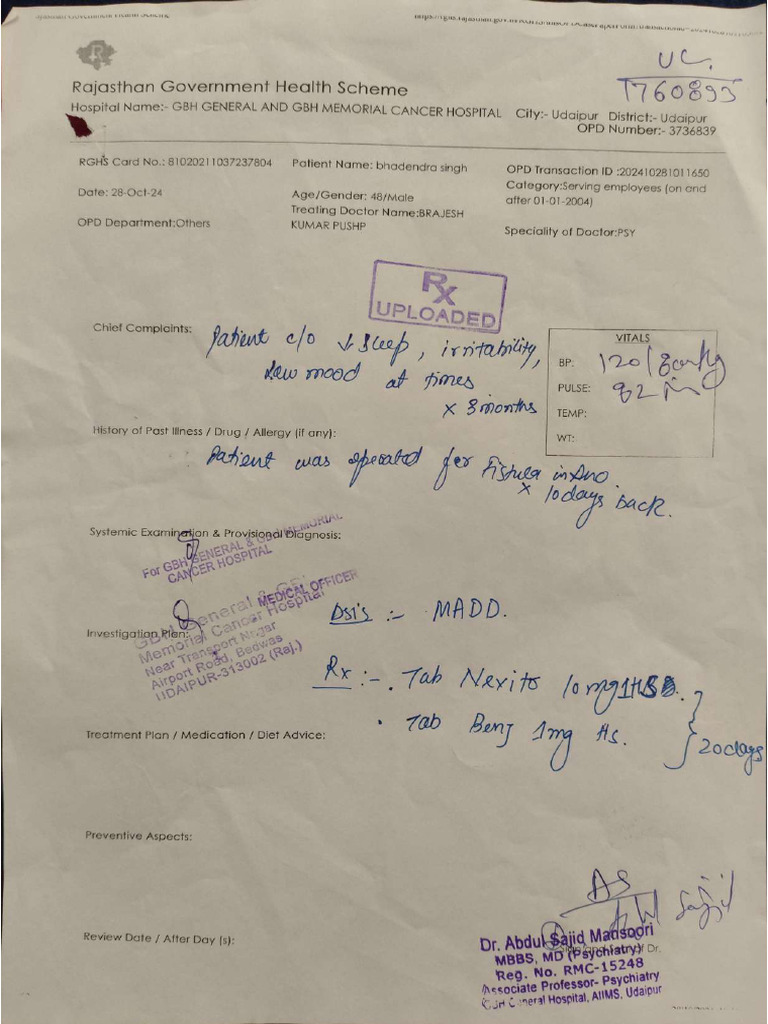 UC.
1760893
Rajasthan Government Health Scheme
Hospital Name:- GBH GENERAL AND GBH MEMORIAL CANCER HOSPITAL City:- Udaipur District:- Udaipur
OPD Number:- 3736839
RGHS Card No.: 81020211037237804 Patient Name: bhadendra singh OPD Transaction ID :202410281011650
Category:Serving employees (on and after 01-01-2004)
Date: 28-Oct-24 Age/Gender: 48/Male
Treating Doctor Name:BRAJESH KUMAR PUSHP
OPD Department:Others Speciality of Doctor:PSY
Rx
UPLOADED
Chief Complaints: Patient c/o ↓ sleep, irritability,
low mood at times
x 3 months
VITALS
BP: 120/80
PULSE: 82
TEMP:
WT:
History of Past Illness / Drug / Allergy (if any):
Patient was operated for Fistula in Ano
x 10 days back.
Systemic Examination & Provisional Diagnosis:
For GBH GENERAL & GBH MEMORIAL
CANCER HOSPITAL
MEDICAL OFFICER
Dsis :- MADD.
Investigation Plan:
GBH General &
Memorial Cancer Hospital
Near Transport Nagar
Airport Road, Bedwas
UDAIPUR-313002 (Raj.)
Rx :- . Tab Nexito 10 mg 1 HS.
. Tab Benz 1mg Hs.
20 days
Treatment Plan / Medication / Diet Advice:
Preventive Aspects:
Review Date / After Day (s):
AS
Dr. Abdul Sajid Mansoori
MBBS, MD (Psychiatry) of Dr.
Reg. No. RMC-15248
Associate Professor- Psychiatry
GBH General Hospital, AIIMS, Udaipur